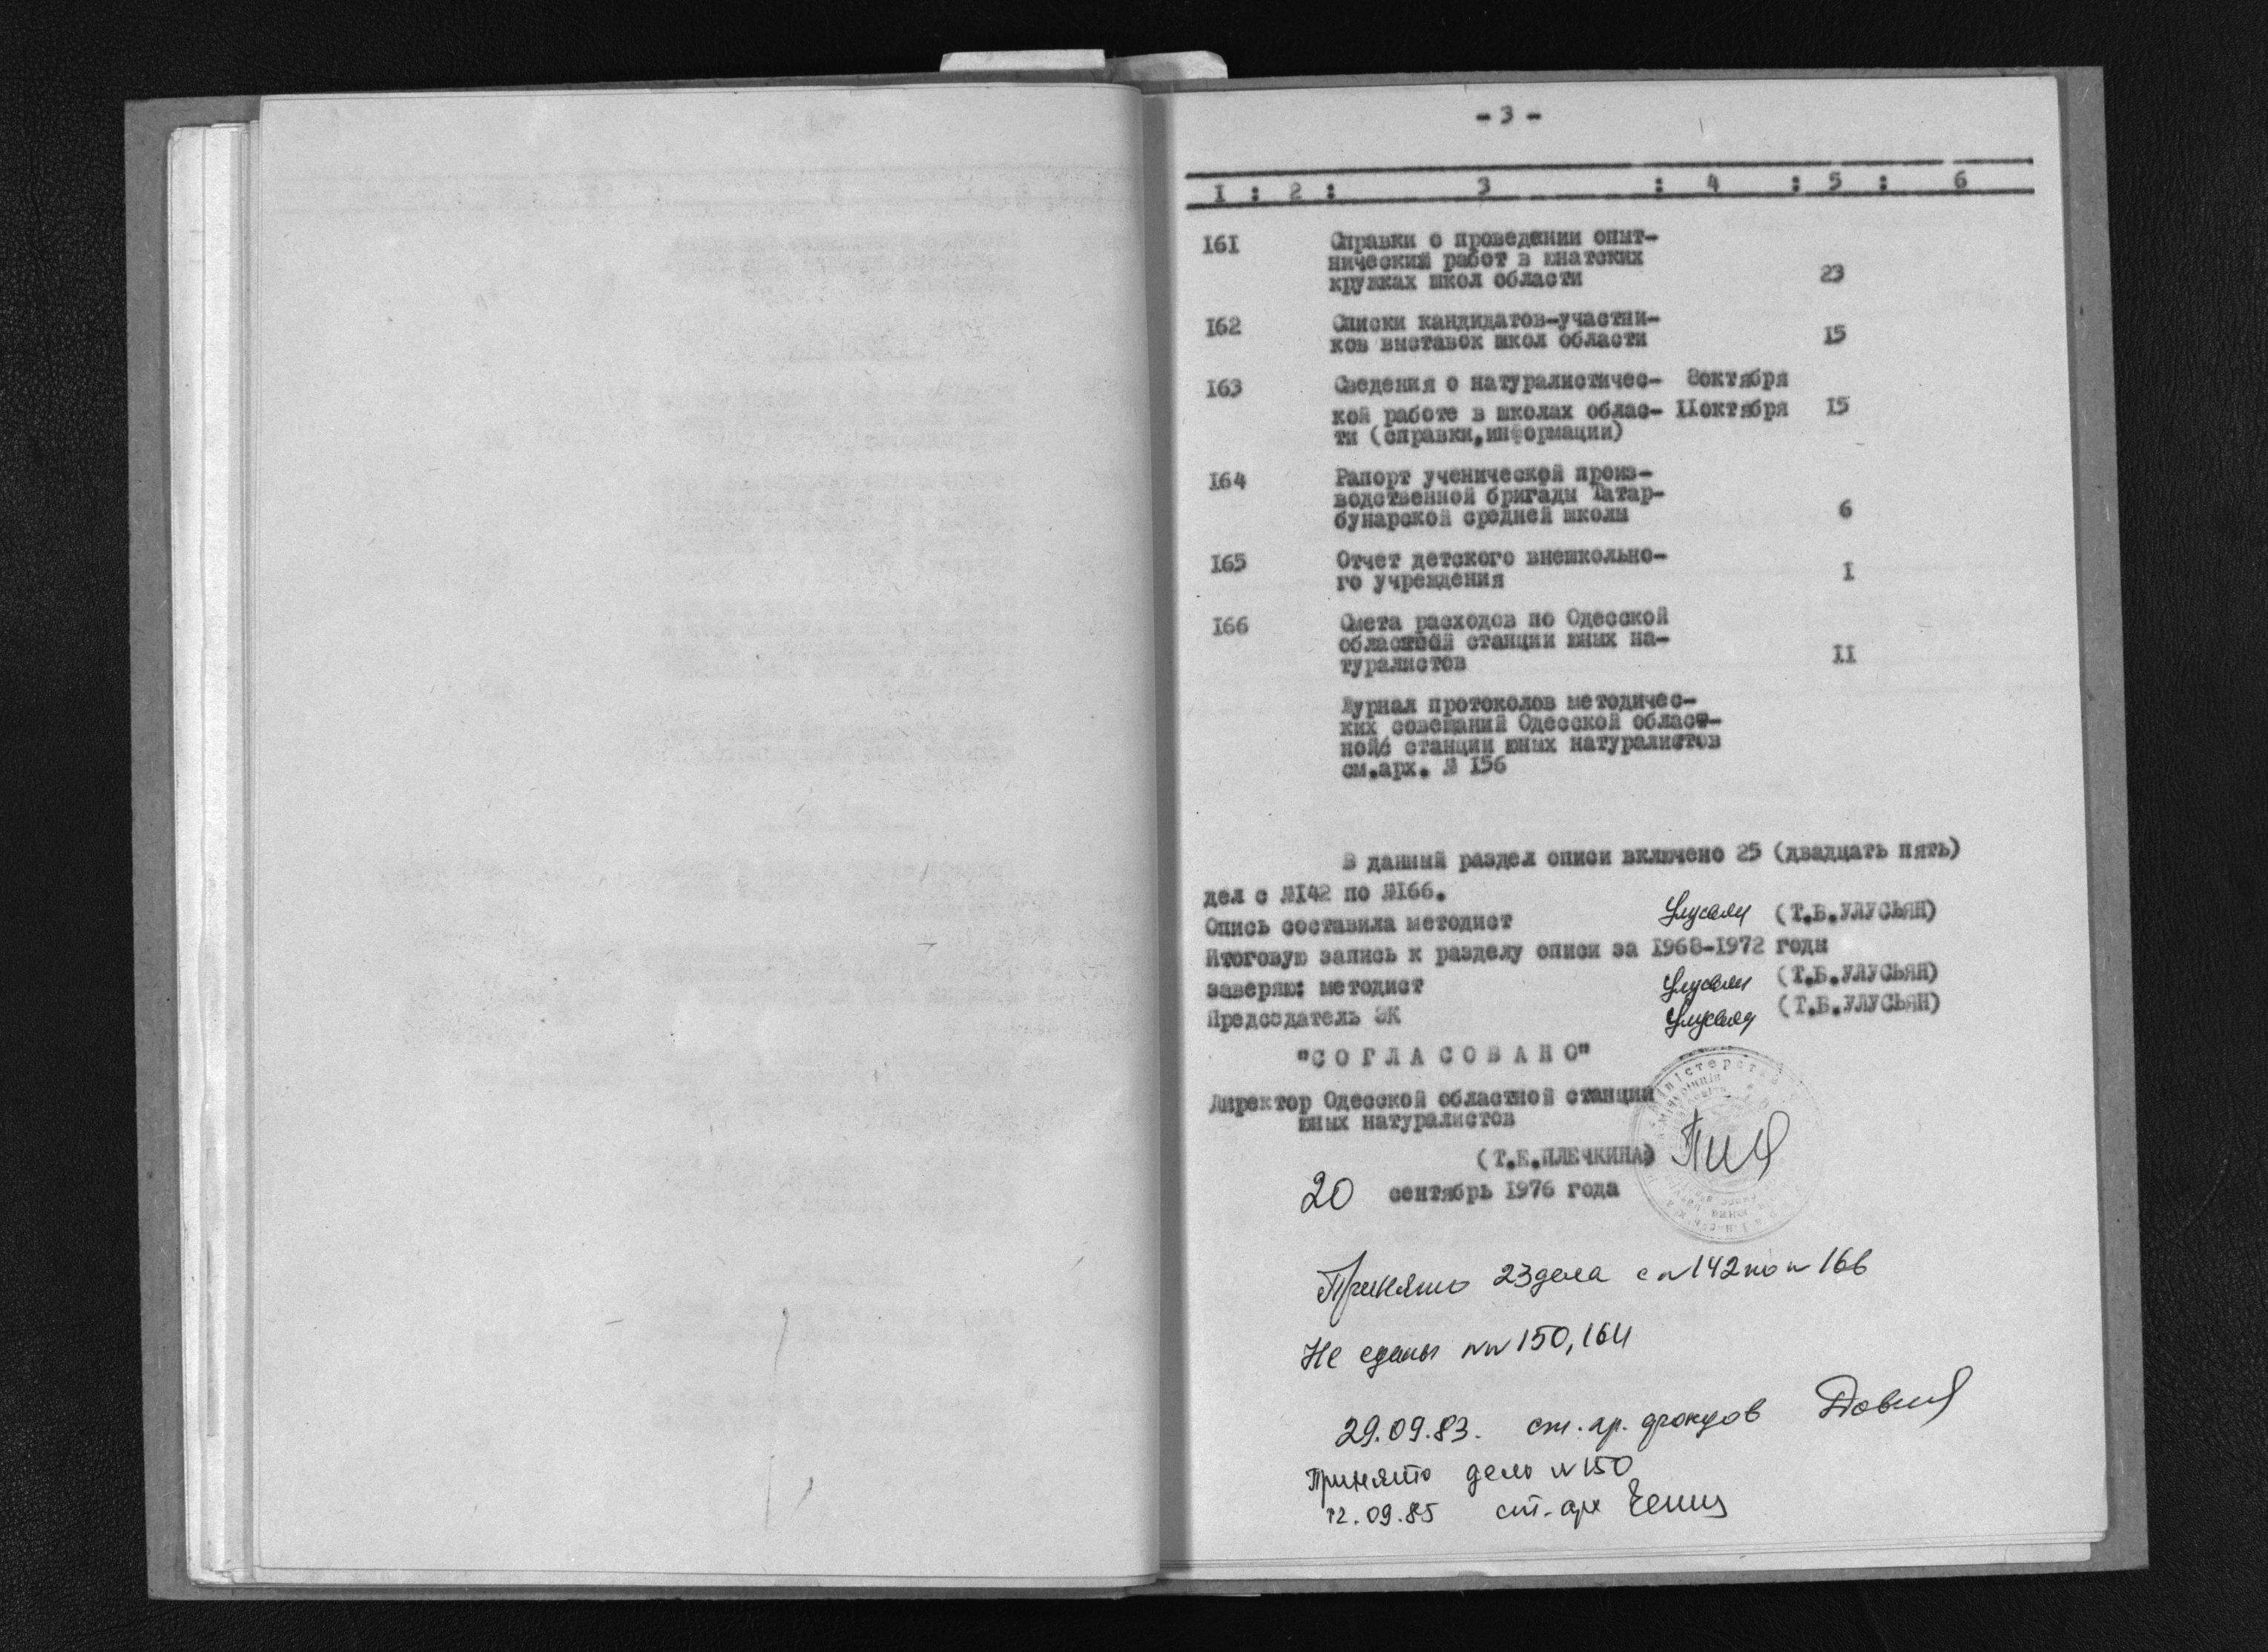 - 3 -
I : 2 : 3 : 4 : 5 : 6
161 Справки о проведении опыт-
нический работ в юнатских
кружках школ области 23
162 Списки кандидатов-участни-
ков выставок школ области 15
163 Сведения о натуралистичес- 8октября
кой работе в школах облас- 11октября 15
ти (справки,информации)
164 Рапорт ученической произ-
водственной бригады Татар-
бунарской средней школы 6
165 Отчет детского внешкольно-
го учреждения I
166 Смета расходов по Одесской
областной станции юных на-
туралистов II
Журнал протоколов методичес-
ких совещаний Одесской област-
ной станции юных натуралистов
см.арх. № 156
В данный раздел описи включено 25 (двадцать пять)
дел с №142 по №166.
Опись составила методист Улусьян (Т.Б.УЛУСЬЯН)
Итоговую запись к разделу описи за 1968-1972 годы
заверяю: методист Улусьян (Т.Б.УЛУСЬЯН)
Председатель ЭК Улусьян (Т.Б.УЛУСЬЯН)
"С О Г Л А С О В А Н О"
Директор Одесской областной станции
юных натуралистов
(Т.Е.ПЛЕЧКИНА)
20 сентябрь 1976 года
Принято 23 дела с №142 по №166
Не сданы №№150, 164
29.09.83. ст. ар. фондов
Принято дело №150
12.09.85 ст. арх